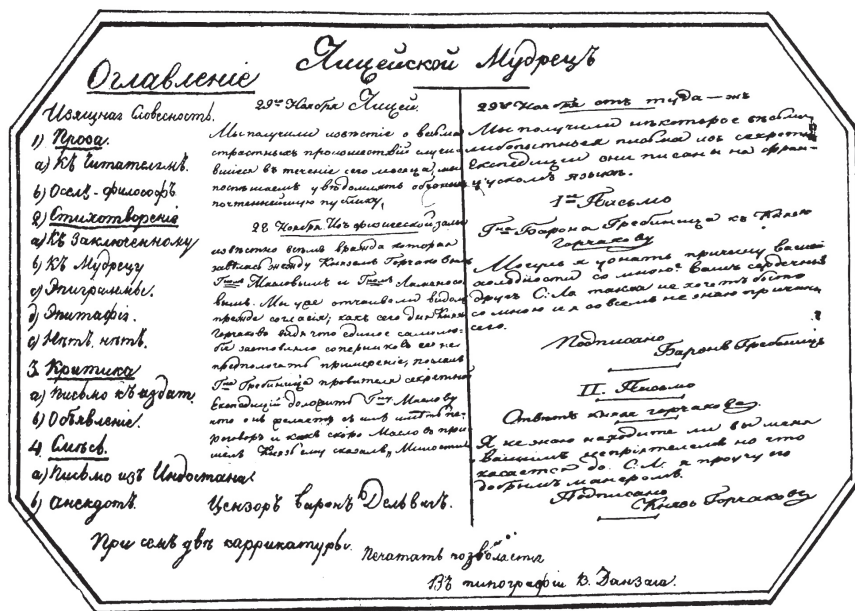 Лицейской Мудрецъ
Оглавленіе
Изящная Словесность.
1) Проза.
а) Къ Читателямъ.
b) Оселъ-философъ
2) Стихотвореніе
а) Къ Заключенному
b) Къ Мудрецу
c) Эпиграммы.
д) Эпитафіи.
е) Нѣтъ, нѣтъ.
3. Критика
а) Письмо къ издат.
b) Объявленіе.
4. Смѣсь.
а) Письмо изъ Индостана
b) анекдотъ.
29го Ноября Лицей.
Мы получили извѣстіе о весьма
страстныхъ происшествій случи
вшіеся въ теченіе сего месяца, мы
поспѣшаемъ увѣдомлять
почтеннѣйшую публику,
28 Ноября. Изъ физической залы
извѣстно всѣмъ вражда которая
завелась между Княземъ Горчаковымъ
Гмъ Масловымъ и Гмъ Ломоносо
вымъ. Мы уже отчаевали видѣть
прежде согласія; какъ сего дня Князь
Горчаковъ видя что едино самолю-
біе заставляло соперниковъ его не
предпологать примереніе, послалъ
Гна Гребиница провителя секретной
Експедицій доложить Гну Маслову
что онъ желаетъ съ имъ имѣть пе-
реговоръ и какъ скоро Масловъ при
шелъ Князь ему сказалъ „Милостив
Цензоръ Баронъ Дельвигъ.
29го Ноября отъ туда-жъ
Мы получили некоторое весьма
любопытнея письма изъ секретной
Експедиціи они писаны на фран-
цускомъ языкѣ.
Iое Письмо
Гна Барона Гребиница къ Князю
Горчакову
Могули я узнать причину вашей
холодности со мною? Вашъ сердечный
другъ С: Ла также не хочетъ быть
со мною и я совсемъ не знаю причины
сего.
Подписано
Баронъ Гребиницъ
II. Письмо
Ответъ Князя Горчакова.
Я не знаю находите ли вы меня
вашимъ непріятелемъ но что
касается до С. Л. я проучу его
добрымъ манеромъ.
Подписано
Князь Горчаковъ
При семъ двѣ каррикатуры.
Печатать позволяется
Въ типографіи В. Данзаса.